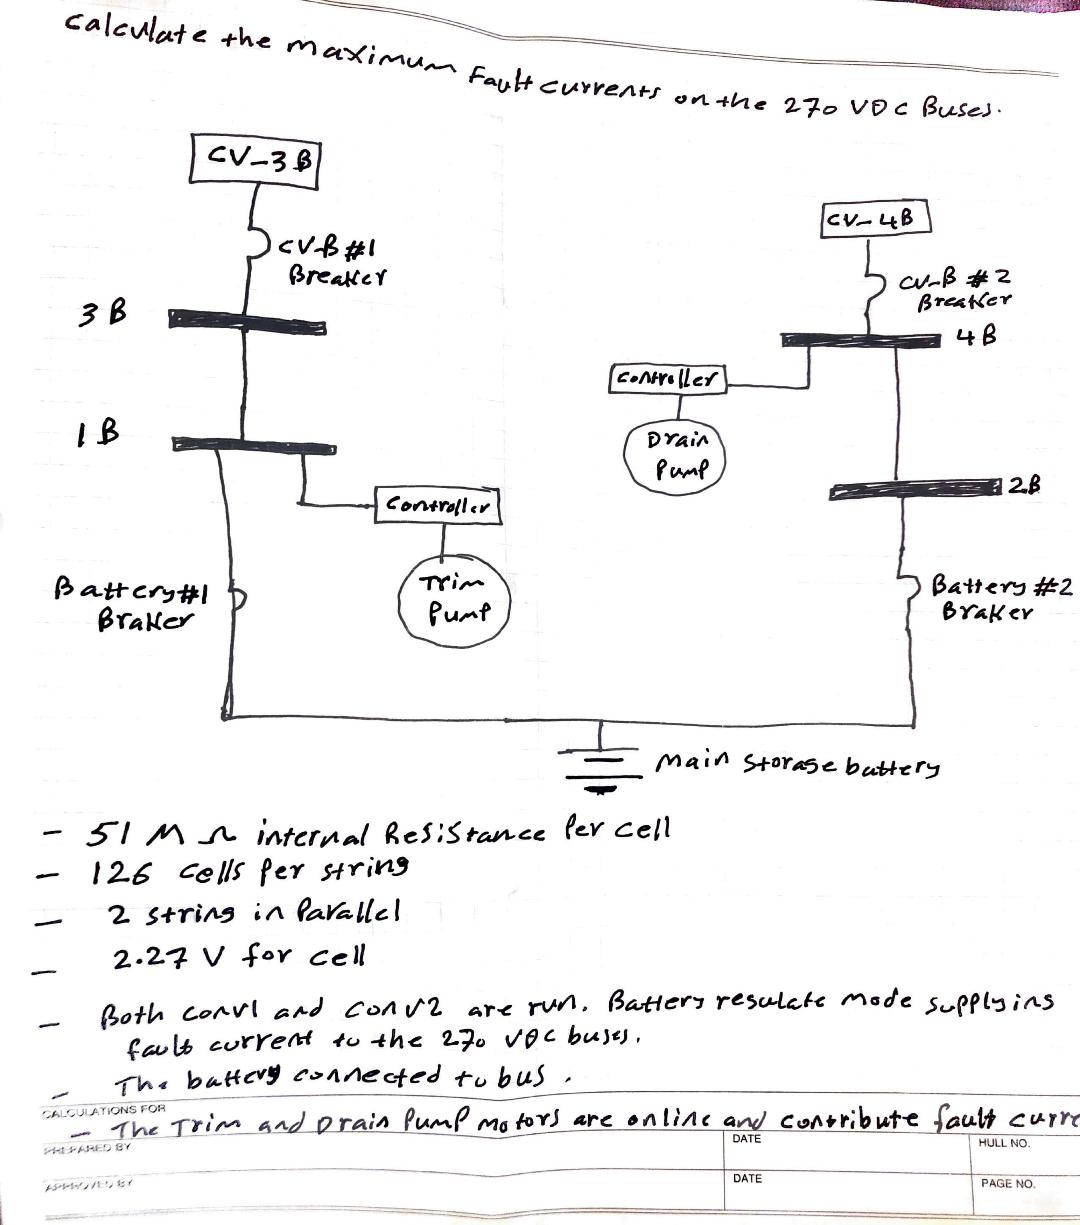 calculate the maximum Fault currents on the 270 VDC Buses.
CV-3B
CV-4B
CVB #1
Breaker
CV-B #2
Breaker
3B
4B
Controller
1B
Drain
Pump
2B
Controller
Battery#1
Braker
Trim
Pump
Battery #2
Braker
Main storage battery
- 51 M Ω internal Resistance Per cell
- 126 cells Per string
- 2 string in Parallel
- 2.27 V for cell
- Both conv1 and conv2 are run. Battery regulate mode supplying
fault current to the 270 VDC buses.
- The battery connected to bus.
CALCULATIONS FOR
- The Trim and Drain Pump motors are online and contribute fault curre
PREPARED BY
DATE
HULL NO.
APPROVED BY
DATE
PAGE NO.